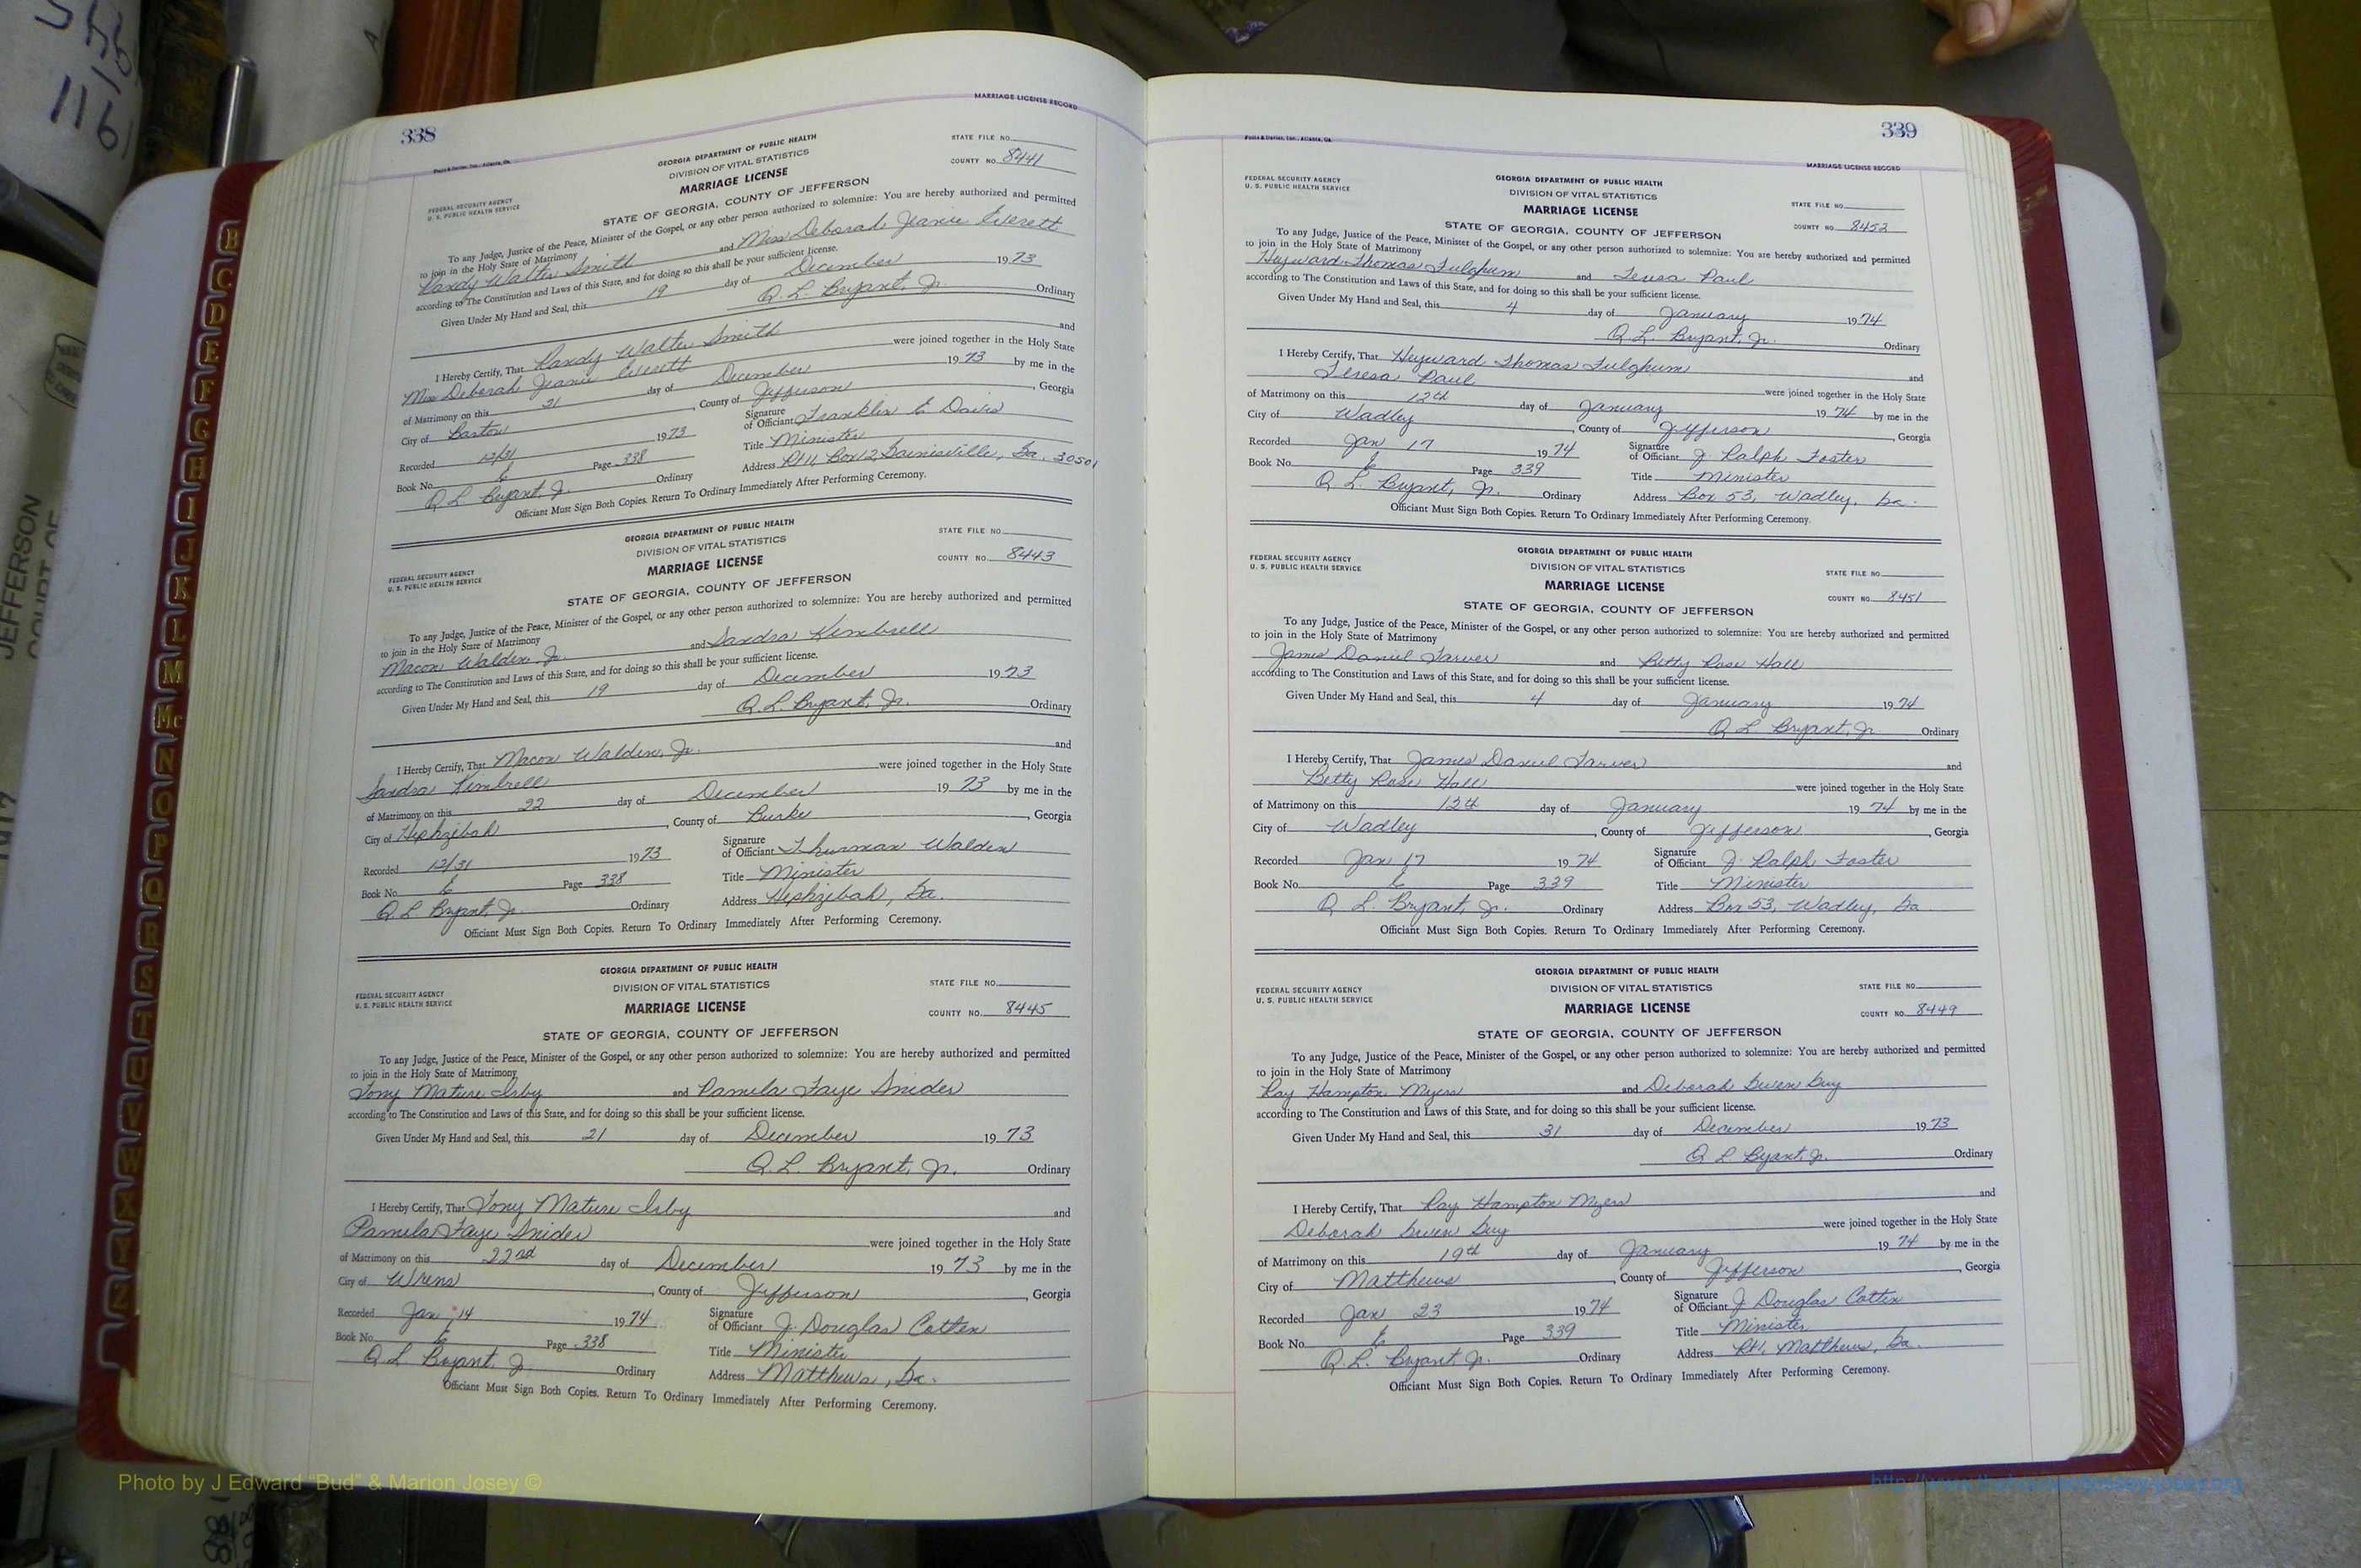 338
MARRIAGE LICENSE RECORD
Foote & Davies, Inc., Atlanta, Ga.
GEORGIA DEPARTMENT OF PUBLIC HEALTH
DIVISION OF VITAL STATISTICS
MARRIAGE LICENSE
STATE FILE NO.
COUNTY NO. 8441
FEDERAL SECURITY AGENCY
U. S. PUBLIC HEALTH SERVICE
STATE OF GEORGIA, COUNTY OF JEFFERSON
To any Judge, Justice of the Peace, Minister of the Gospel, or any other person authorized to solemnize: You are hereby authorized and permitted
to join in the Holy State of Matrimony
Randy Walter Smith and Miss Deborah Jeanie Everett
according to The Constitution and Laws of this State, and for doing so this shall be your sufficient license.
Given Under My Hand and Seal, this 19 day of December 1973
Q. L. Bryant, Jr. Ordinary
I Hereby Certify, That Randy Walter Smith and
Miss Deborah Jeanie Everett were joined together in the Holy State
of Matrimony on this 21 day of December 1973 by me in the
City of Bartow, County of Jefferson, Georgia
Recorded 12/31 1973 Signature of Officiant Franklin E. Davis
Book No. 6 Page 338 Title Minister
Q. L. Bryant, Jr. Ordinary Address Rt 11, Box 12, Gainesville, Ga. 30501
Officiant Must Sign Both Copies. Return To Ordinary Immediately After Performing Ceremony.
GEORGIA DEPARTMENT OF PUBLIC HEALTH
DIVISION OF VITAL STATISTICS
MARRIAGE LICENSE
STATE FILE NO.
COUNTY NO. 8443
FEDERAL SECURITY AGENCY
U. S. PUBLIC HEALTH SERVICE
STATE OF GEORGIA, COUNTY OF JEFFERSON
To any Judge, Justice of the Peace, Minister of the Gospel, or any other person authorized to solemnize: You are hereby authorized and permitted
to join in the Holy State of Matrimony
Macon Walden, Jr. and Sandra Kimbrell
according to The Constitution and Laws of this State, and for doing so this shall be your sufficient license.
Given Under My Hand and Seal, this 19 day of December 1973
Q. L. Bryant, Jr. Ordinary
I Hereby Certify, That Macon Walden, Jr. and
Sandra Kimbrell were joined together in the Holy State
of Matrimony on this 22 day of December 1973 by me in the
City of Hephzibah, County of Burke, Georgia
Recorded 12/31 1973 Signature of Officiant Thurman Walden
Book No. 6 Page 338 Title Minister
Q. L. Bryant, Jr. Ordinary Address Hephzibah, Ga.
Officiant Must Sign Both Copies. Return To Ordinary Immediately After Performing Ceremony.
GEORGIA DEPARTMENT OF PUBLIC HEALTH
DIVISION OF VITAL STATISTICS
MARRIAGE LICENSE
STATE FILE NO.
COUNTY NO. 8445
FEDERAL SECURITY AGENCY
U. S. PUBLIC HEALTH SERVICE
STATE OF GEORGIA, COUNTY OF JEFFERSON
To any Judge, Justice of the Peace, Minister of the Gospel, or any other person authorized to solemnize: You are hereby authorized and permitted
to join in the Holy State of Matrimony
Tony Mature Irby and Pamela Faye Snider
according to The Constitution and Laws of this State, and for doing so this shall be your sufficient license.
Given Under My Hand and Seal, this 21 day of December 1973
Q. L. Bryant, Jr. Ordinary
I Hereby Certify, That Tony Mature Irby and
Pamela Faye Snider were joined together in the Holy State
of Matrimony on this 22nd day of December 1973 by me in the
City of Wrens, County of Jefferson, Georgia
Recorded Jan 14 1974 Signature of Officiant J. Douglas Cotten
Book No. 6 Page 338 Title Minister
Q. L. Bryant, Jr. Ordinary Address Matthews, Ga.
Officiant Must Sign Both Copies. Return To Ordinary Immediately After Performing Ceremony.
339
Foote & Davies, Inc., Atlanta, Ga.
MARRIAGE LICENSE RECORD
FEDERAL SECURITY AGENCY
U. S. PUBLIC HEALTH SERVICE
GEORGIA DEPARTMENT OF PUBLIC HEALTH
DIVISION OF VITAL STATISTICS
MARRIAGE LICENSE
STATE FILE NO.
COUNTY NO. 8452
STATE OF GEORGIA, COUNTY OF JEFFERSON
To any Judge, Justice of the Peace, Minister of the Gospel, or any other person authorized to solemnize: You are hereby authorized and permitted
to join in the Holy State of Matrimony
Heyward Thomas Fulghum and Teresa Paul
according to The Constitution and Laws of this State, and for doing so this shall be your sufficient license.
Given Under My Hand and Seal, this 4 day of January 1974
Q. L. Bryant, Jr. Ordinary
I Hereby Certify, That Heyward Thomas Fulghum and
Teresa Paul were joined together in the Holy State
of Matrimony on this 12th day of January 1974 by me in the
City of Wadley, County of Jefferson, Georgia
Recorded Jan 17 1974 Signature of Officiant J. Ralph Foster
Book No. 6 Page 339 Title Minister
Q. L. Bryant, Jr. Ordinary Address Box 53, Wadley, Ga.
Officiant Must Sign Both Copies. Return To Ordinary Immediately After Performing Ceremony.
FEDERAL SECURITY AGENCY
U. S. PUBLIC HEALTH SERVICE
GEORGIA DEPARTMENT OF PUBLIC HEALTH
DIVISION OF VITAL STATISTICS
MARRIAGE LICENSE
STATE FILE NO.
COUNTY NO. 8451
STATE OF GEORGIA, COUNTY OF JEFFERSON
To any Judge, Justice of the Peace, Minister of the Gospel, or any other person authorized to solemnize: You are hereby authorized and permitted
to join in the Holy State of Matrimony
James Daniel Tarver and Betty Rose Hall
according to The Constitution and Laws of this State, and for doing so this shall be your sufficient license.
Given Under My Hand and Seal, this 4 day of January 1974
Q. L. Bryant, Jr. Ordinary
I Hereby Certify, That James Daniel Tarver and
Betty Rose Hall were joined together in the Holy State
of Matrimony on this 12th day of January 1974 by me in the
City of Wadley, County of Jefferson, Georgia
Recorded Jan 17 1974 Signature of Officiant J. Ralph Foster
Book No. 6 Page 339 Title Minister
Q. L. Bryant, Jr. Ordinary Address Box 53, Wadley, Ga
Officiant Must Sign Both Copies. Return To Ordinary Immediately After Performing Ceremony.
FEDERAL SECURITY AGENCY
U. S. PUBLIC HEALTH SERVICE
GEORGIA DEPARTMENT OF PUBLIC HEALTH
DIVISION OF VITAL STATISTICS
MARRIAGE LICENSE
STATE FILE NO.
COUNTY NO. 8449
STATE OF GEORGIA, COUNTY OF JEFFERSON
To any Judge, Justice of the Peace, Minister of the Gospel, or any other person authorized to solemnize: You are hereby authorized and permitted
to join in the Holy State of Matrimony
Ray Hampton Myers and Deborah Gwen Guy
according to The Constitution and Laws of this State, and for doing so this shall be your sufficient license.
Given Under My Hand and Seal, this 31 day of December 1973
Q. L. Byant, Jr. Ordinary
I Hereby Certify, That Ray Hampton Myers and
Deborah Gwen Guy were joined together in the Holy State
of Matrimony on this 19th day of January 1974 by me in the
City of Matthews, County of Jefferson, Georgia
Recorded Jan 23 1974 Signature of Officiant J. Douglas Cotten
Book No. 6 Page 339 Title Minister
Q. L. Bryant, Jr. Ordinary Address Rt 1, Matthews, Ga.
Officiant Must Sign Both Copies. Return To Ordinary Immediately After Performing Ceremony.
B
C
D
E
F
G
H
I
J
K
L
M
Mc
N
O
P
Q
R
S
T
U
V
W
X
Y
Z
JEFFERSON
COURT OF
Photo by J Edward "Bud" & Marion Josey ©